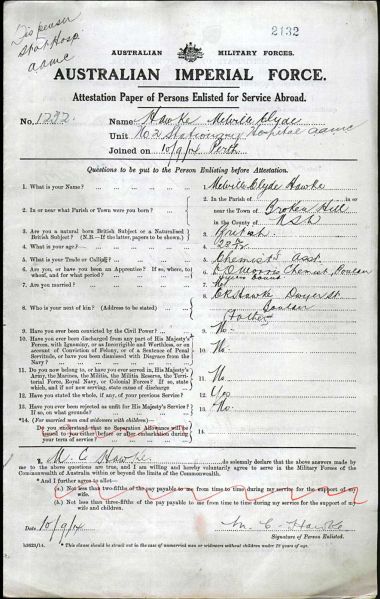 Dispenser
Stat. Hosp
aamc
2132
AUSTRALIAN MILITARY FORCES.
AUSTRALIAN IMPERIAL FORCE.
Attestation Paper of Persons Enlisted for Service Abroad.
No. 1272 Name: Hawke Melville Clyde
Unit No 2 Stationary Hospital aamc
Joined on 10/9/14 Perth
Questions to be put to the Person Enlisting before Attestation.
1. What is your Name? 1. Melville Clyde Hawke
2. In or near what Parish or Town were you born? 2. In the Parish of in or
near the Town of Broken Hill
in the County of N S W
3. Are you a natural born British Subject or a Naturalised
British Subject? (N.B.—If the latter, papers to be shown.) 3. British
4. What is your age? 4.
5. What is your Trade or Calling? 5. Chemist's asst.
6. Are you, or have you been an Apprentice? If so, where, to
whom, and for what period? 6. Morris Chemist,
7. Are you married? 7. No
8. Who is your next of kin? (Address to be stated) 8. Hawke St
(Father)
9. Have you ever been convicted by the Civil Power? 9. No
10. Have you ever been discharged from any part of His Majesty's
Forces, with Ignominy, or as Incorrigible and Worthless, or on
account of Conviction of Felony, or of a Sentence of Penal
Servitude, or have you been dismissed with Disgrace from the
Navy? 10. No
11. Do you now belong to, or have you ever served in, His Majesty's
Army, the Marines, the Militia, the Militia Reserve, the Territorial
Force, Royal Navy, or Colonial Forces? If so, state
which, and if not now serving, state cause of discharge 11. No
12. Have you stated the whole, if any, of your previous Service? 12. Yes
13. Have you ever been rejected as unfit for His Majesty's Service?
If so, on what grounds? 13. No
*14. (For married men and widowers with children)
Do you understand that no Separation Allowance will be
issued to you either before or after embarkation during
your term of service? 14.
I, M. C. Hawke do solemnly declare that the above answers made by
me to the above questions are true, and I am willing and hereby voluntarily agree to serve in the Military Forces of the
Commonwealth of Australia within or beyond the limits of the Commonwealth.
*And I further agree to allot—
(a.) Not less than two-fifths of the pay payable to me from time to time during my service for the support of my
wife.
(b.) Not less than three-fifths of the pay payable to me from time to time during my service for the support of my
wife and children.
Date 10/9/14 M. C. Hawke
Signature of Person Enlisted.
*This clause should be struck out in the case of unmarried men or widowers without children under 18 years of age.